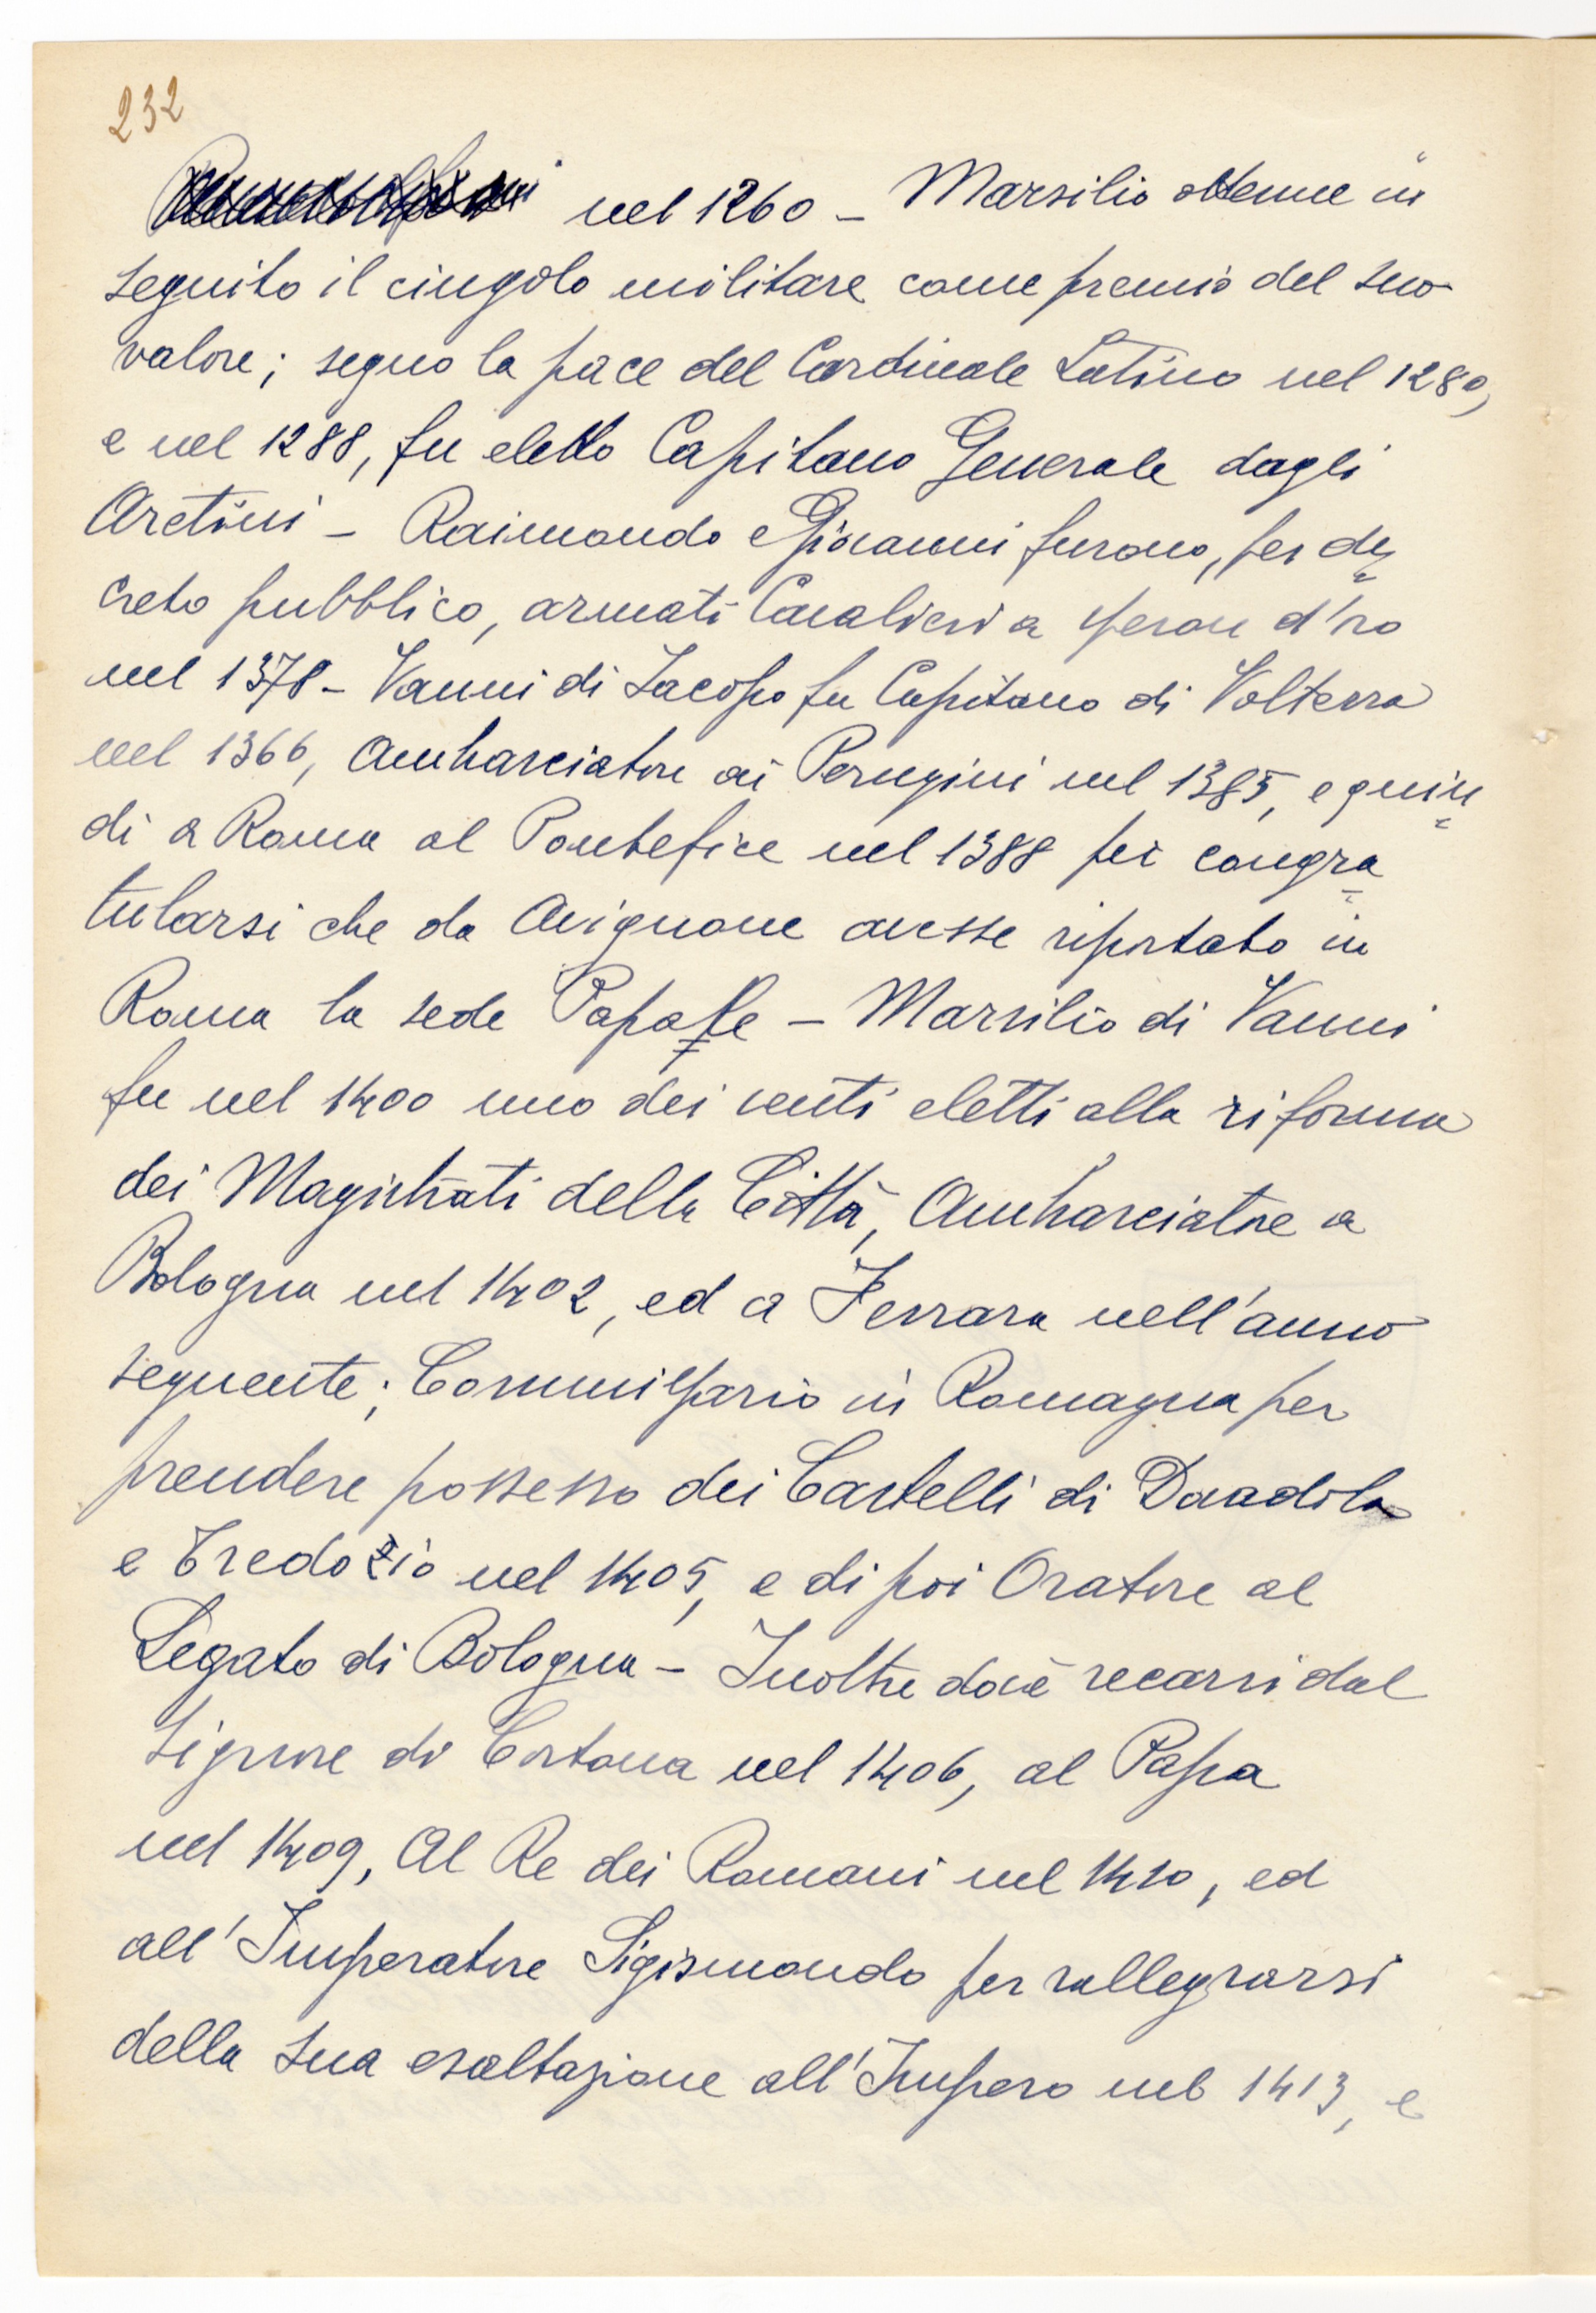 232
nel 1260 – Marsilio ottenne in
seguito il cingolo militare come premio del suo
valore; segno la pace del Cardinale Latino nel 1280,
e nel 1288, fu eletto Capitano Generale dagli
Aretini – Raimondo e Giovanni furono, per de
creto pubblico, armati Cavalieri a speron d'ro
nel 1378 – Vanni di Iacopo fu Capitano di Volterra
nel 1366, Ambasciatore ai Perugini nel 1385, e quin
di a Roma al Pontefice nel 1388 per congra
tularsi che da Avignone avesse riportato in
Roma la sede Papale – Marsilio di Vanni
fu nel 1400 uno dei venti eletti alla riforma
dei Magistrati della Città, Ambasciatore a
Bologna nel 1402, ed a Ferrara nell'anno
seguente; Commissario in Romagna per
prendere possesso dei Castelli di Dovadola
e Tredozio nel 1405, e di poi Oratore al
Legato di Bologna – Inoltre dovè recarsi dal
Signore di Cortona nel 1406, al Papa
nel 1409, Al Re dei Romani nel 1410, ed
all'Imperatore Sigismondo per rallegrarsi
della sua esaltazione all'Impero nel 1413, e